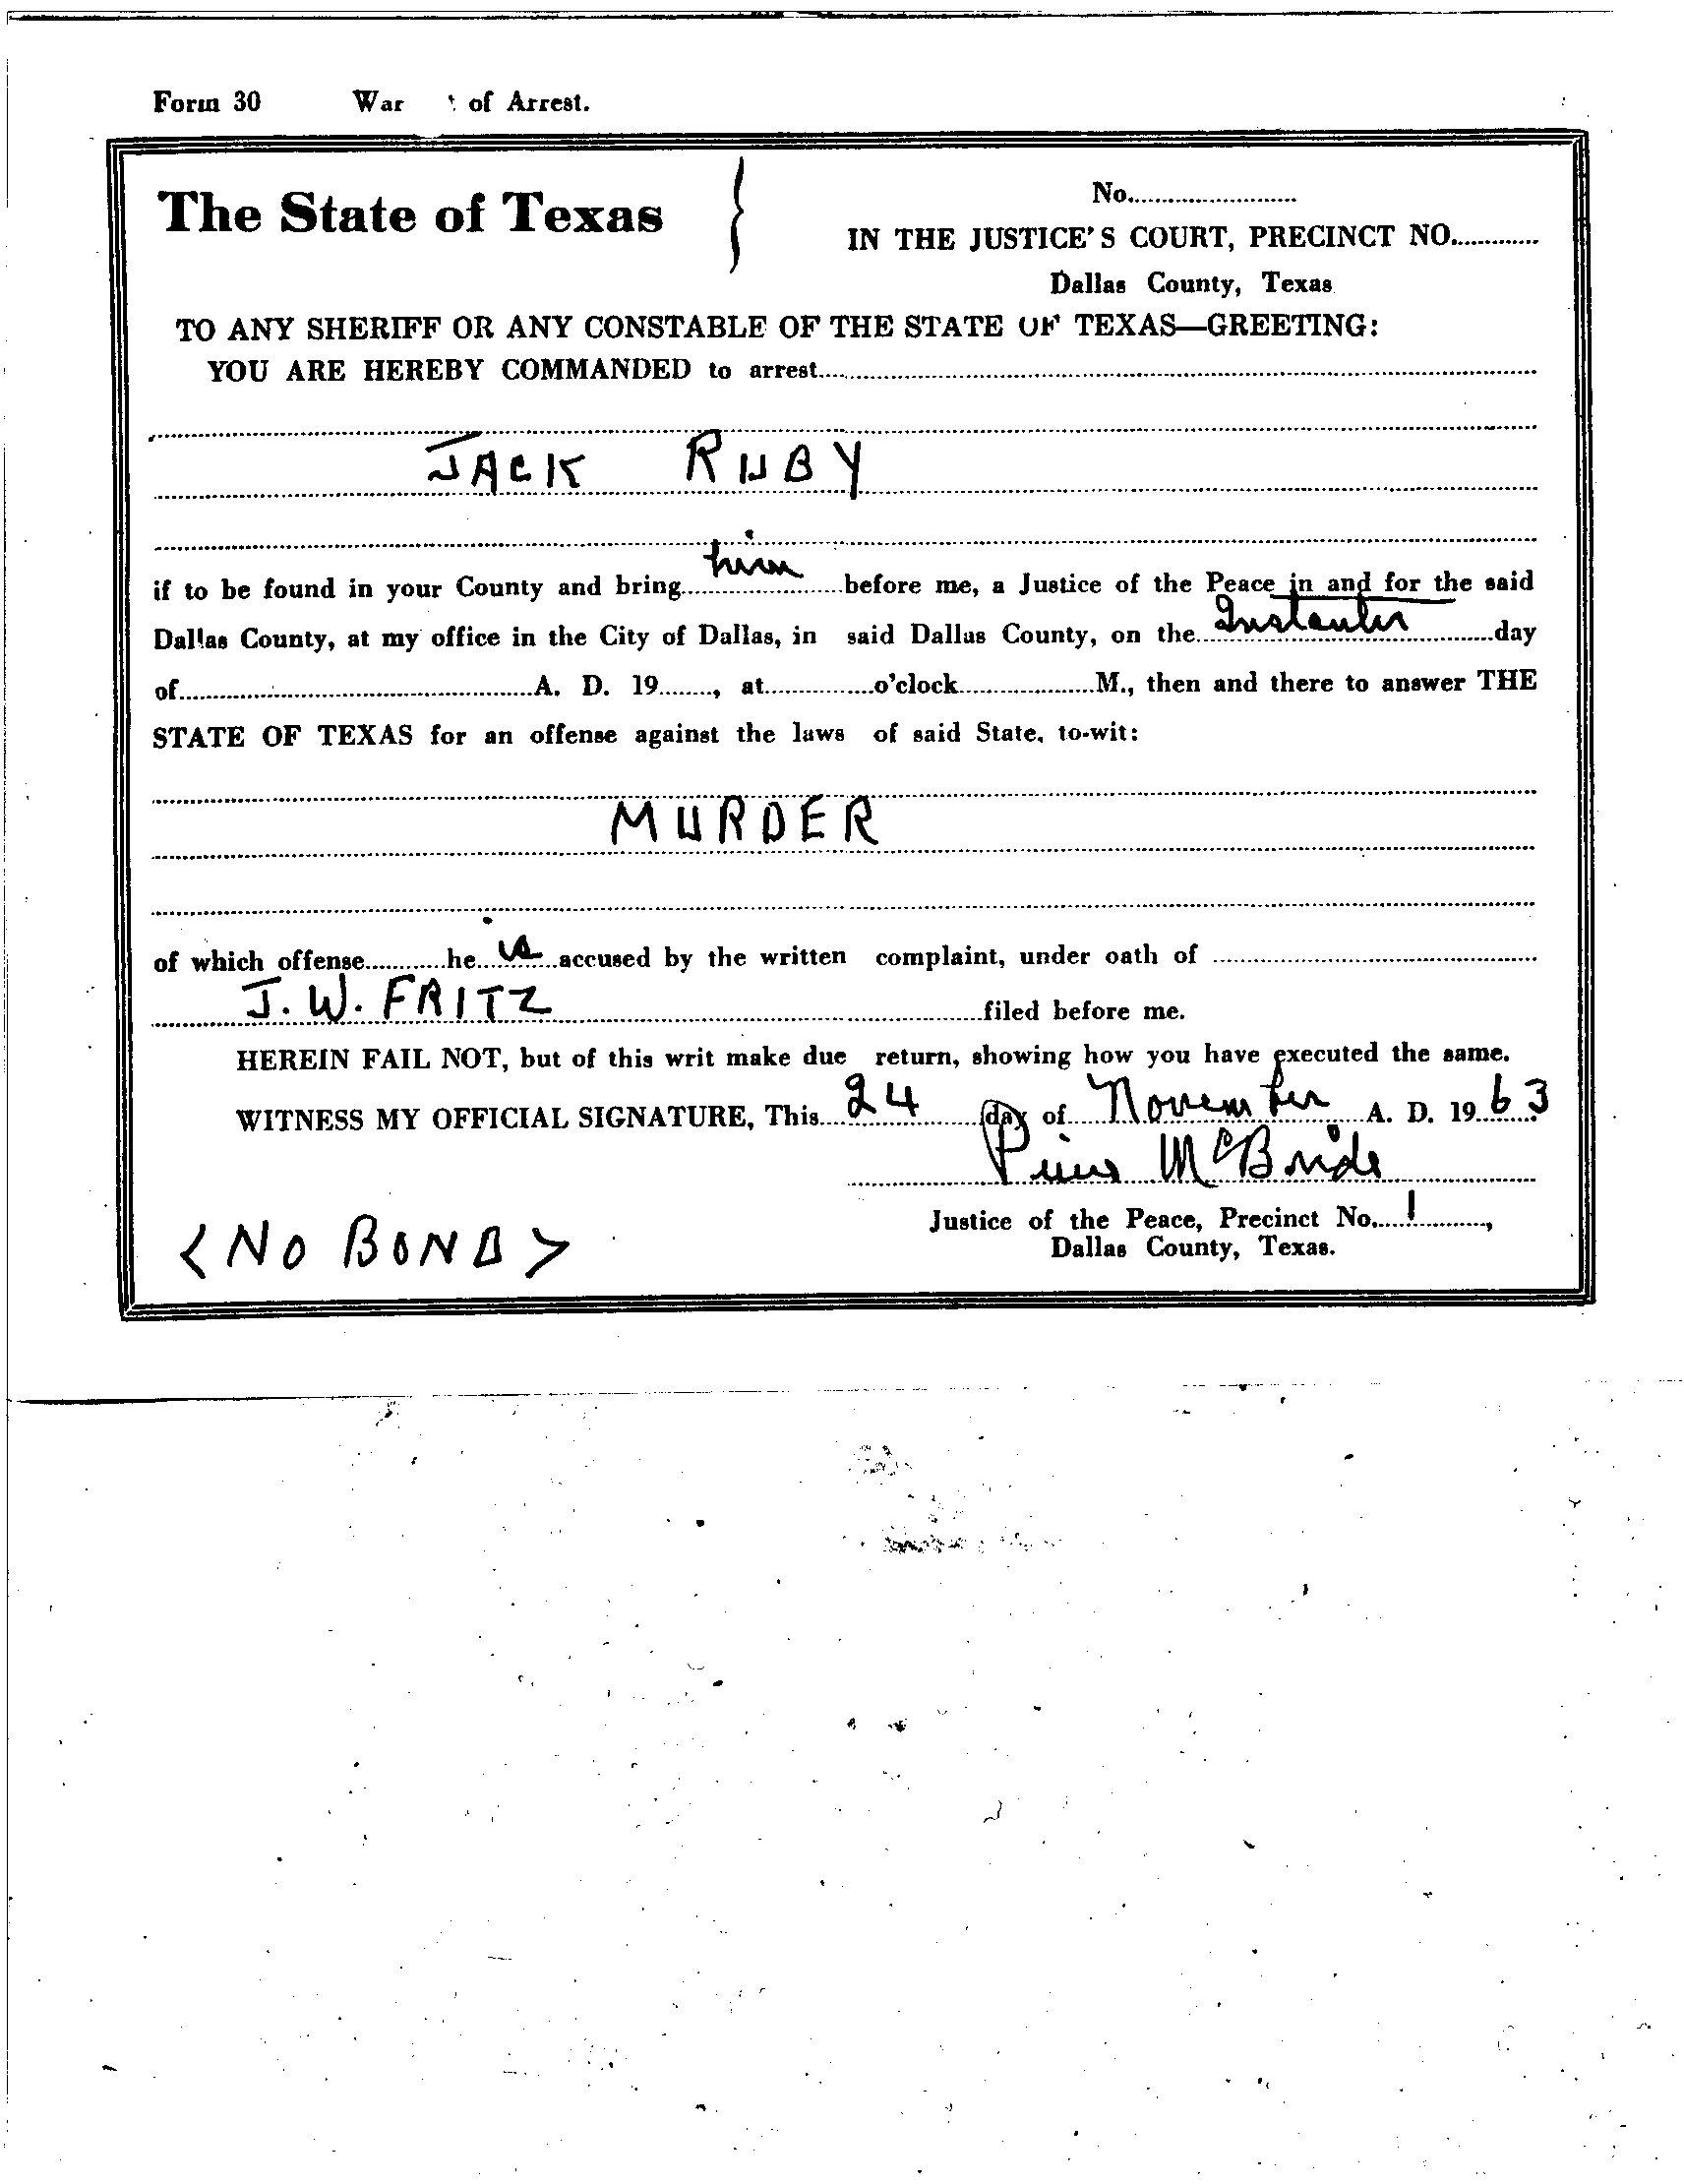 Form 30 War t of Arrest.
The State of Texas
No.
IN THE JUSTICE'S COURT, PRECINCT NO.
Dallas County, Texas
TO ANY SHERIFF OR ANY CONSTABLE OF THE STATE OF TEXAS—GREETING:
YOU ARE HEREBY COMMANDED to arrest
JACK RUBY
if to be found in your County and bring him before me, a Justice of the Peace in and for the said
Dallas County, at my office in the City of Dallas, in said Dallas County, on the Instanter day
of A. D. 19, at o'clock M., then and there to answer THE
STATE OF TEXAS for an offense against the laws of said State, to-wit:
MURDER
of which offense he is accused by the written complaint, under oath of
J. W. FRITZ filed before me.
HEREIN FAIL NOT, but of this writ make due return, showing how you have executed the same.
WITNESS MY OFFICIAL SIGNATURE, This 24 day of November A. D. 1963
McBride
Justice of the Peace, Precinct No. 1,
Dallas County, Texas.
<NO BOND>